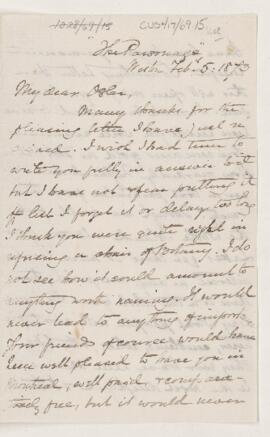 1028/69/15 CUS417/69.15
"The Parsonage"
Weston Feb. 5: 1873
My dear Osler,
Many thanks for the
pleasing letter I have just re
ceived. I wish I had time to
write you fully in answer but
but I have not & fear putting it
off lest I forget it or delay too long
I think you were quite right in
refusing a chair of Botany. I do
not see how it could amount to
anything worth naming. It would
never lead to anything of import
Your friends of course would have
been well pleased to have you in
Montreal, well paid &
free, but it would never